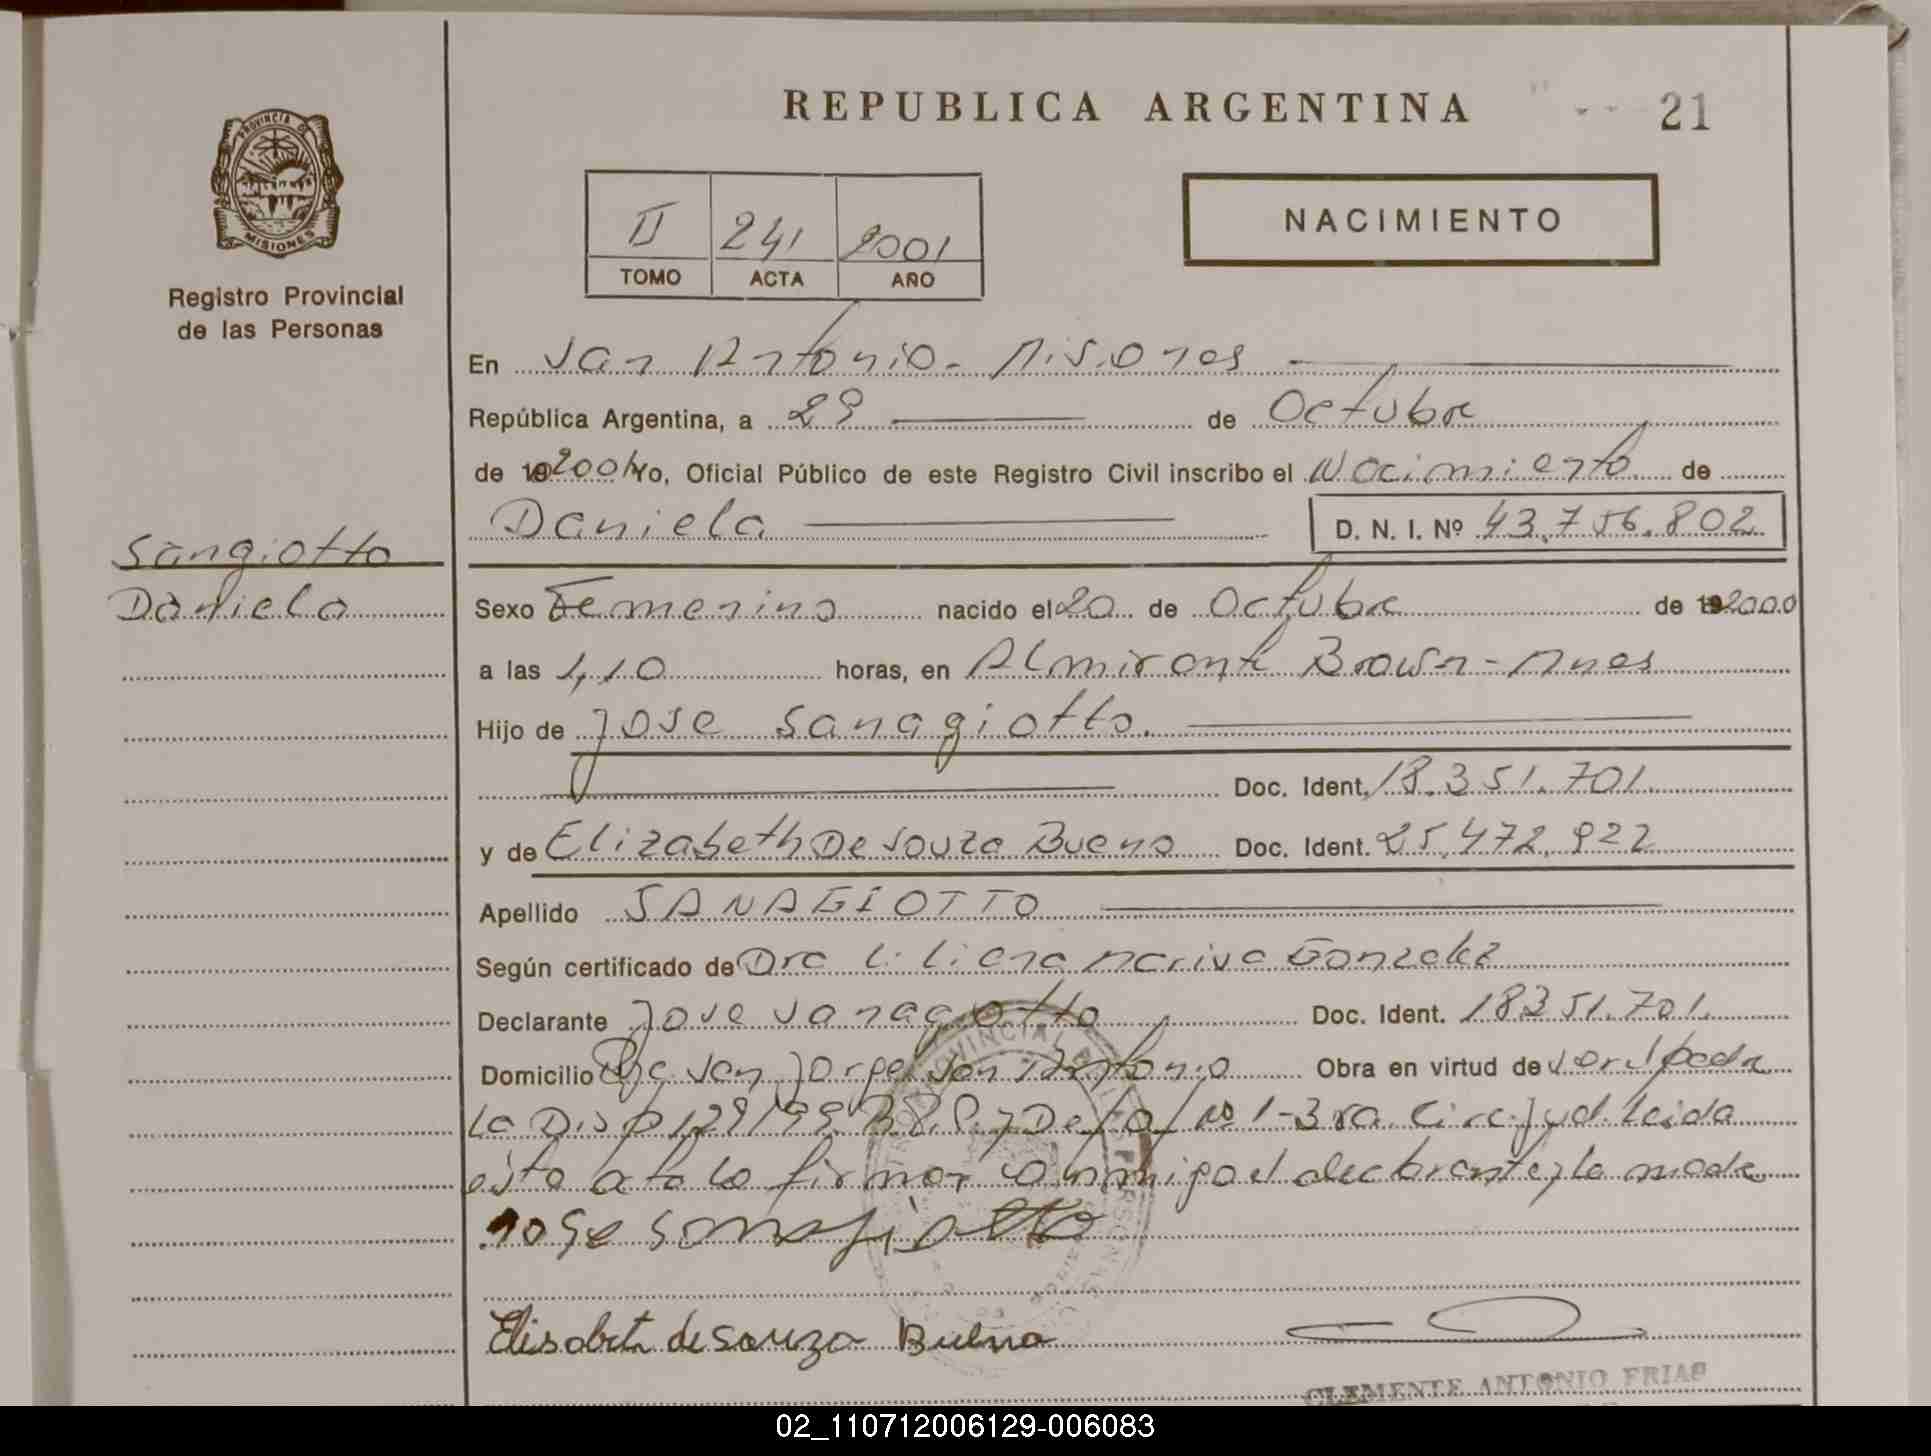 REPUBLICA ARGENTINA
21
PROVINCIA DE
MISIONES
Registro Provincial
de las Personas
II 241 2001
TOMO ACTA AÑO
NACIMIENTO
En San Antonio - Misiones
República Argentina, a 29 de Octubre
de 19 2001 Yo, Oficial Público de este Registro Civil inscribo el Nacimiento de
Daniela D. N. I. Nº 43.756.802
Sangiotto
Daniela
Sexo Femenino nacido el 20 de Octubre de 19 2000
a las 1,10 horas, en Almirante Brown - Mnes
Hijo de Jose Sanagiotto.
Doc. Ident. 18.351.701.
y de Elizabeth De Souza Bueno Doc. Ident. 25.472.922
Apellido SANAGIOTTO
Según certificado de Dra Liliana Marisa Gonzalez
Declarante Jose Sanagiotto Doc. Ident. 18351.701.
Domicilio San Jorge San Antonio Obra en virtud de ser el padre
La Disp 129/99 R.P.P. y Def Of Nº 1-3ra. Circ. Jud. Leida
esta acta la firman conmigo el declarante y la madre
Jose Sanagiotto
Elisabete de Souza Bueno
CLEMENTE ANTONIO FRIAS
02_110712006129-006083